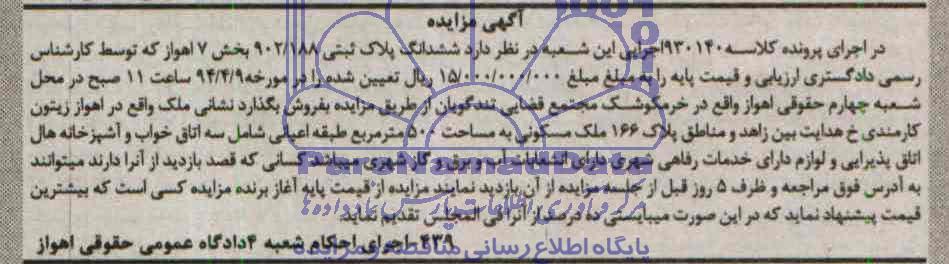 آگهی مزایده
در اجرای پرونده کلاسه ۹۳۰۱۴۰ اجرایی این شعبه در نظر دارد ششدانگ پلاک ثبتی ۹۰۲/۱۸۸ بخش ۷ اهواز که توسط کارشناس
رسمی دادگستری ارزیابی و قیمت پایه را به مبلغ مبلغ ۱۵/۰۰۰/۰۰۰/۰۰۰ ریال تعیین شده را در مورخه ۹۴/۴/۹ ساعت ۱۱ صبح در محل
شعبه چهارم حقوقی اهواز واقع در خرمکوشک مجتمع قضایی تندگویان از طریق مزایده بفروش بگذارد نشانی ملک واقع در اهواز زیتون
کارمندی خ هدایت بین زاهد و مناطق پلاک ۱۶۶ ملک مسکونی به مساحت ۵۰۰ مترمربع طبقه اعیانی شامل سه اتاق خواب و آشپزخانه هال
اتاق پذیرایی و لوازم دارای خدمات رفاهی شهری دارای انشعابات آب و برق و گاز شهری میباشد کسانی که قصد بازدید از آنرا دارند میتوانند
به آدرس فوق مراجعه و ظرف ۵ روز قبل از جلسه مزایده از آن بازدید نمایند مزایده از قیمت پایه آغاز برنده مزایده کسی است که بیشترین
قیمت پیشنهاد نماید که در این صورت میبایستی ده درصد از آنرا فی المجلس تقدیم نماید
۴۳۹-اجرای احکام شعبه ۴ دادگاه عمومی حقوقی اهواز
پایگاه اطلاع رسانی مناقصه و مزایده